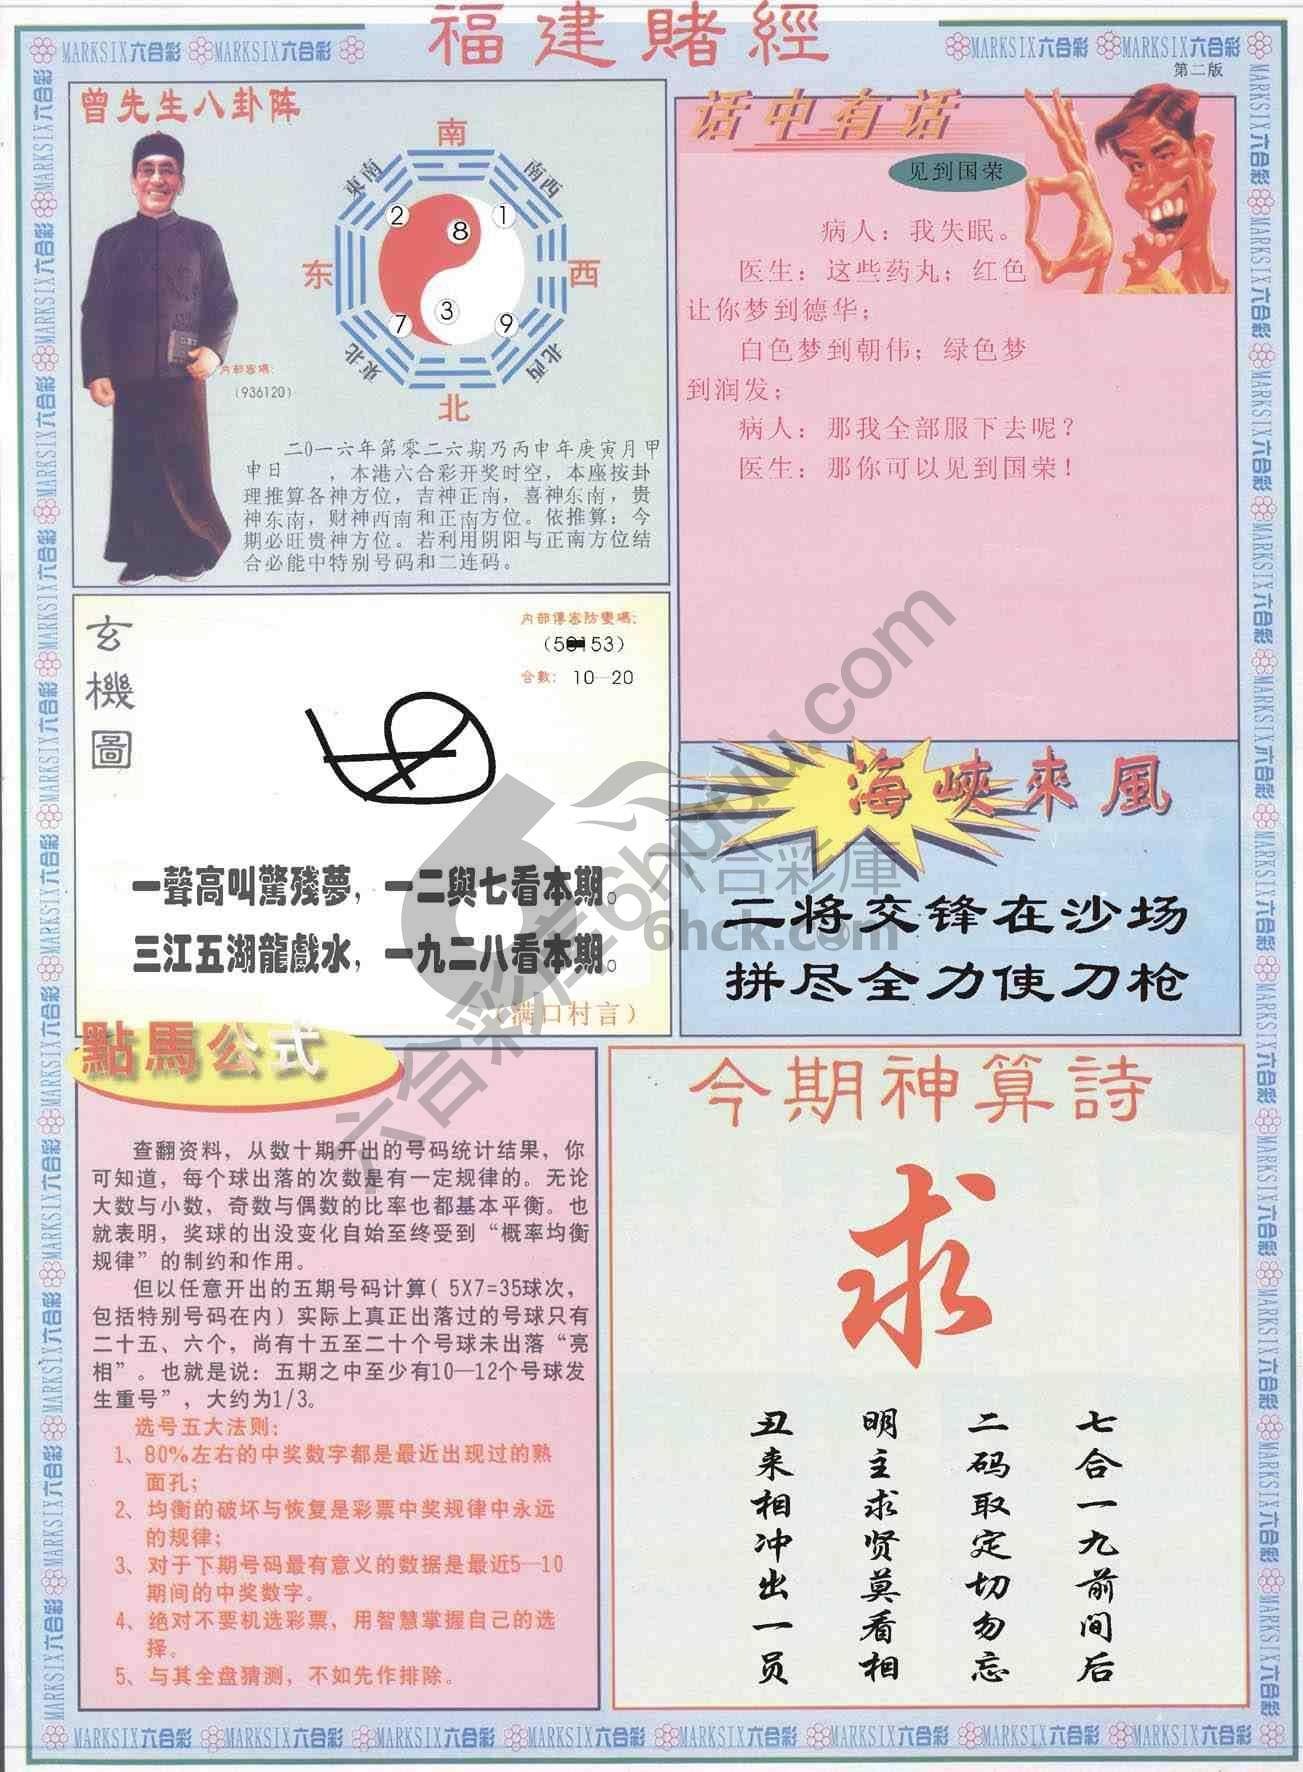 福建賭經
MARKSIX六合彩 MARKSIX六合彩
MARKSIX六合彩 MARKSIX六合彩
第二版
曾先生八卦阵
南
東南
南西
2
8
1
东
西
7
3
9
東北
北西
北
内部密碼：
（936120）
二0一六年第零二六期乃丙申年庚寅月甲
申日　　，本港六合彩开奖时空，本座按卦
理推算各神方位，吉神正南，喜神东南，贵
神东南，财神西南和正南方位。依推算：今
期必旺贵神方位。若利用阴阳与正南方位结
合必能中特别号码和二连码。
话中有话
见到国荣
病人：我失眠。
医生：这些药丸；红色
让你梦到德华；
白色梦到朝伟；绿色梦
到润发；
病人：那我全部服下去呢？
医生：那你可以见到国荣！
玄機圖
内部傳密防變碼：
合數：10—20
一聲高叫驚殘夢，一二與七看本期。
三江五湖龍戲水，一九二八看本期。
（满口村言）
海峽來風
二将交锋在沙场
拼尽全力使刀枪
點馬公式
查翻资料，从数十期开出的号码统计结果，你
可知道，每个球出落的次数是有一定规律的。无论
大数与小数，奇数与偶数的比率也都基本平衡。也
就表明，奖球的出没变化自始至终受到“概率均衡
规律”的制约和作用。
但以任意开出的五期号码计算（5X7=35球次，
包括特别号码在内）实际上真正出落过的号球只有
二十五、六个，尚有十五至二十个号球未出落“亮
相”。也就是说：五期之中至少有10—12个号球发
生重号”，大约为1/3。
选号五大法则：
1、80%左右的中奖数字都是最近出现过的熟
面孔；
2、均衡的破坏与恢复是彩票中奖规律中永远
的规律；
3、对于下期号码最有意义的数据是最近5—10
期间的中奖数字。
4、绝对不要机选彩票，用智慧掌握自己的选
择。
5、与其全盘猜测，不如先作排除。
今期神算詩
求
七合一九前间后
二码取定切勿忘
明主求贤莫看相
丑来相冲出一员
MARKSIX六合彩 MARKSIX六合彩 MARKSIX六合彩 MARKSIX六合彩 MARKSIX六合彩 MARKSIX六合彩 MARKSIX六合彩 MARKSIX六合彩
六合彩庫
6hck.com